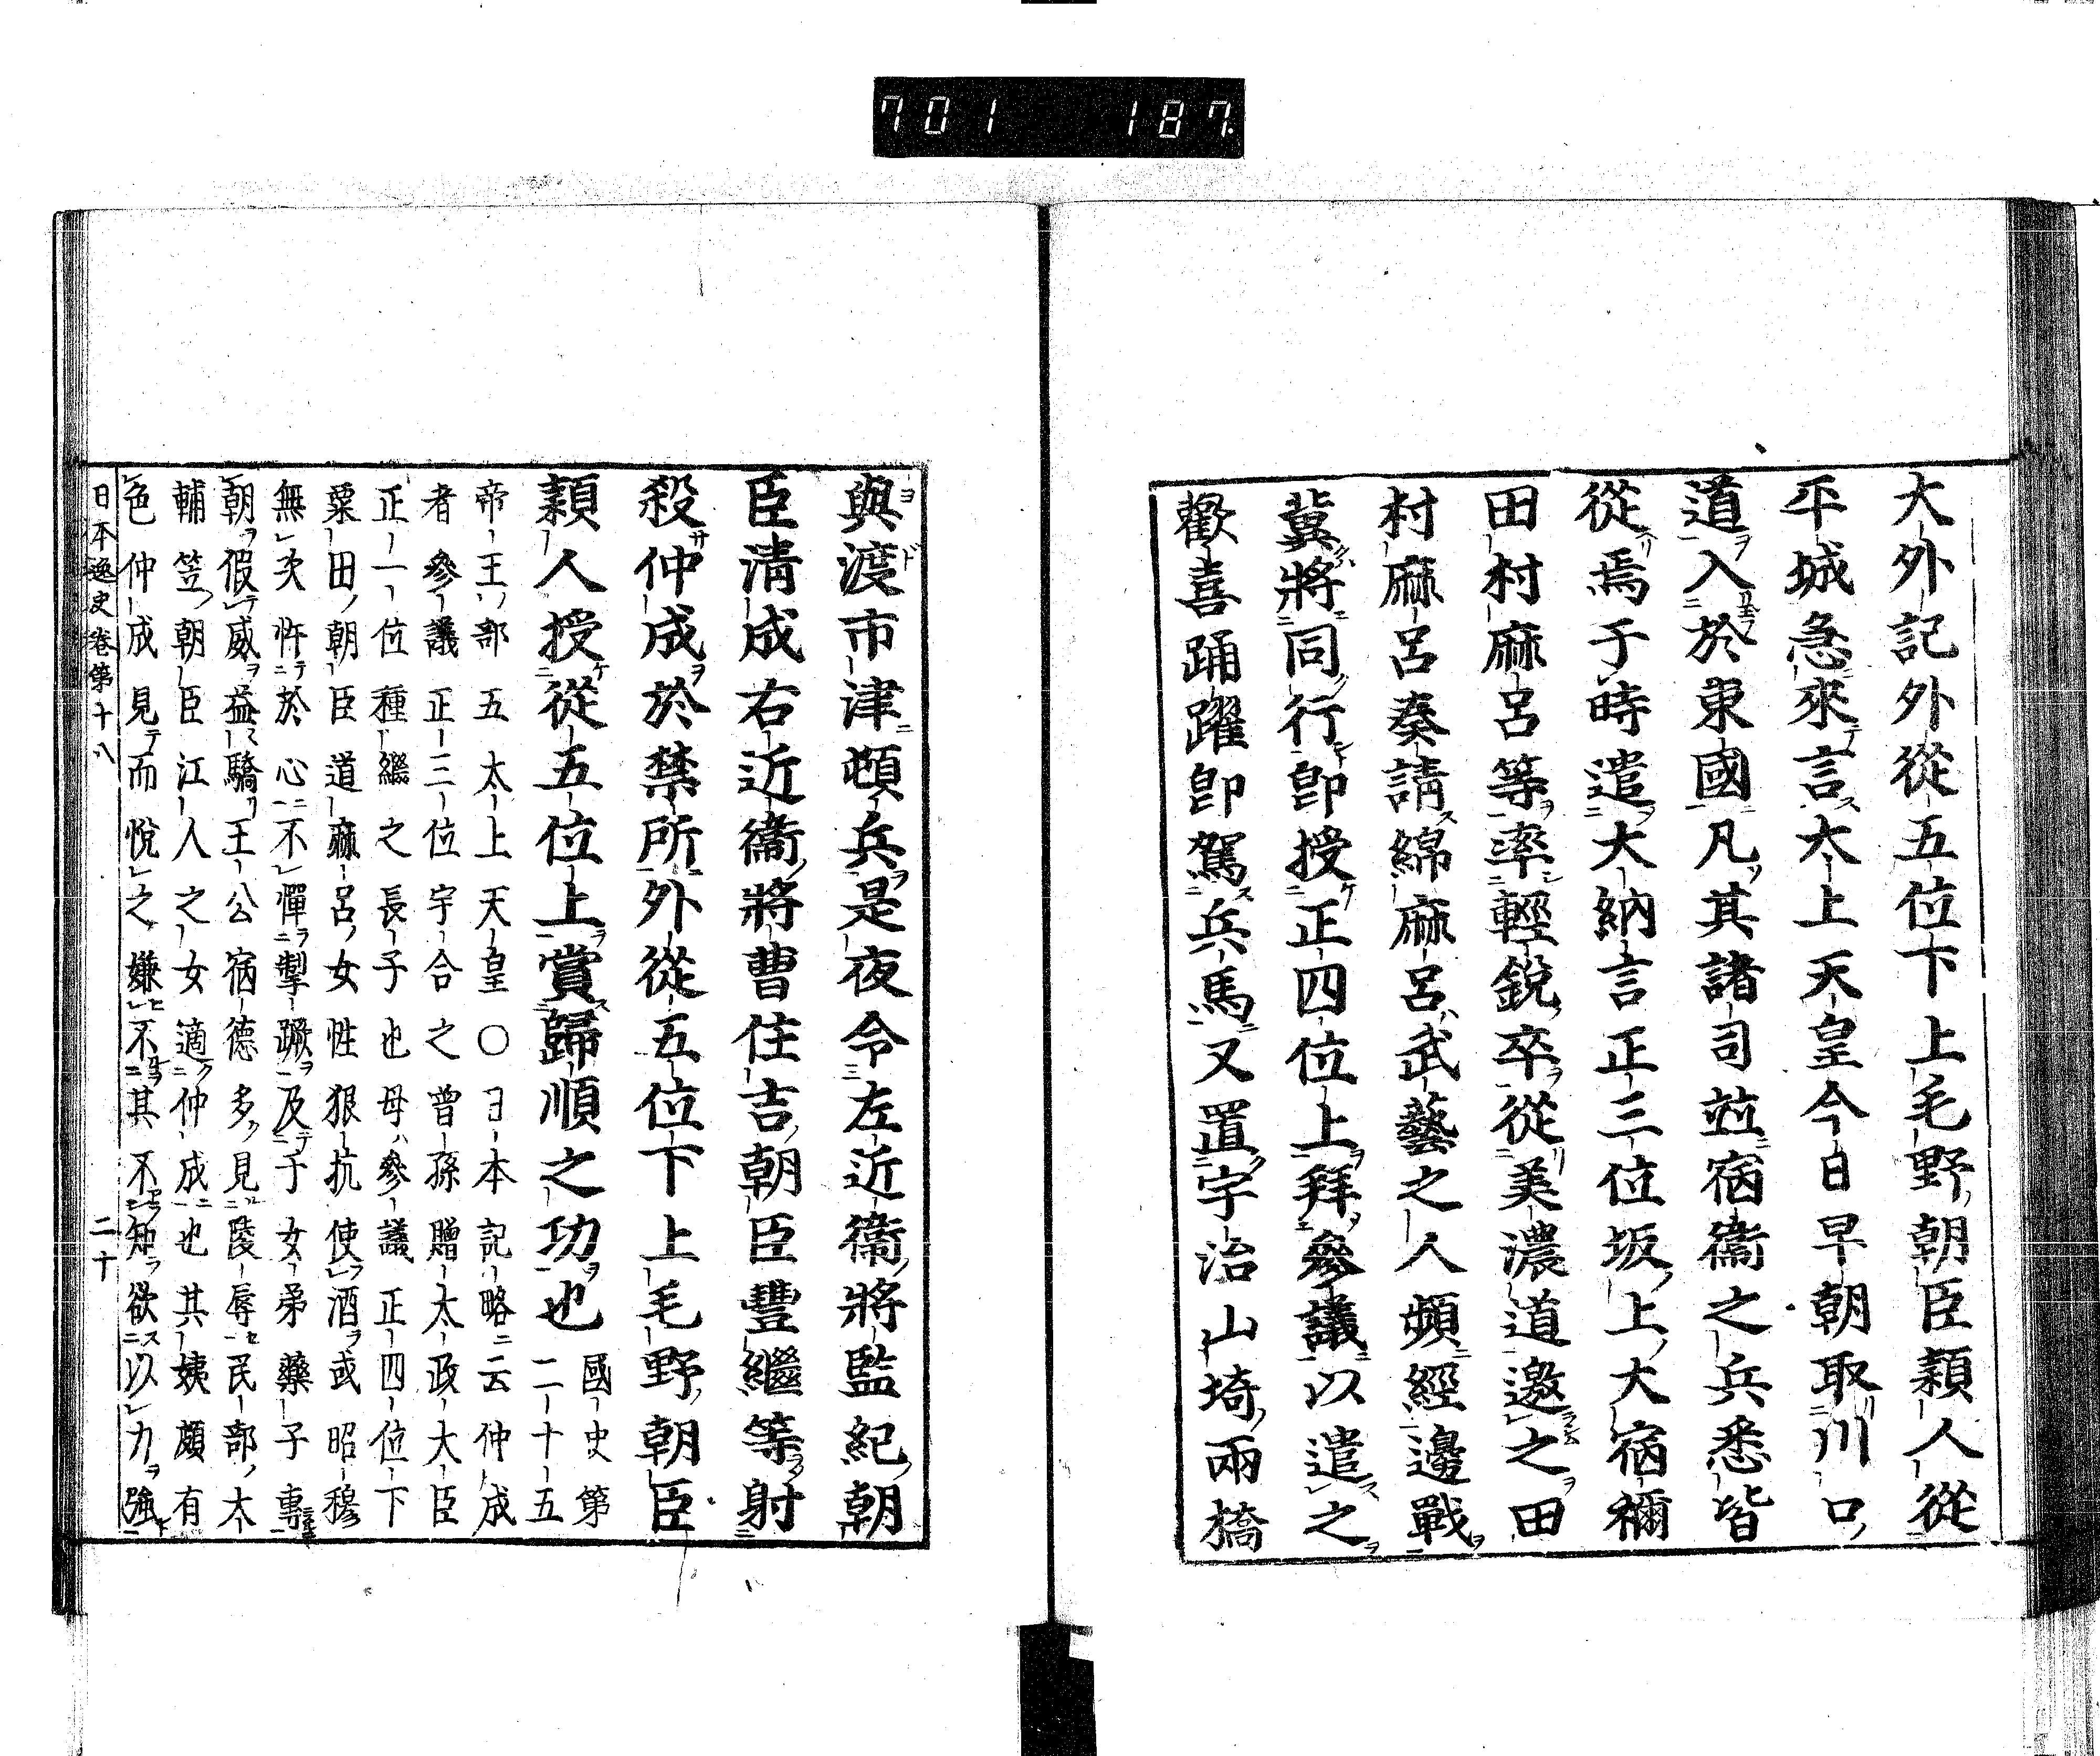 701 187
大外記外從五位下上毛野朝臣穎人從
平城急來言太上天皇今日早朝取川口
道入於東國凡其諸司竝宿衞之兵悉皆
從焉于時遣大納言正三位坂上大宿禰
田村麻呂等率輕鋭卒從美濃道邀之田
村麻呂奏請綿麻呂武藝之人頻經邊戰
冀將同行卽授正四位上拜參議以遣之
歡喜踊躍卽駕兵馬又置宇治山埼兩橋
與渡市津頓兵是夜令左近衞將監紀朝
臣淸成右近衞將曹住吉朝臣豐繼等射
殺仲成於禁所外從五位下上毛野朝臣
穎人授從五位上賞歸順之功也國史第
二十五
帝王部五太上天皇〇日本記略云仲成
者參議正三位宇合之曾孫贈太政大臣
正一位種繼之長子也母參議正四位下
粟田朝臣道麻呂女性狠抗使酒或昭穆
無次忤於心不憚掣蹶及于女弟藥子專
朝假威益驕王公宿德多見陵辱民部太
輔笠朝臣江人之女適仲成也其姨頗有
色仲成見而悅之嫌不其不知欲以力強
日本逸史卷第十八 二十